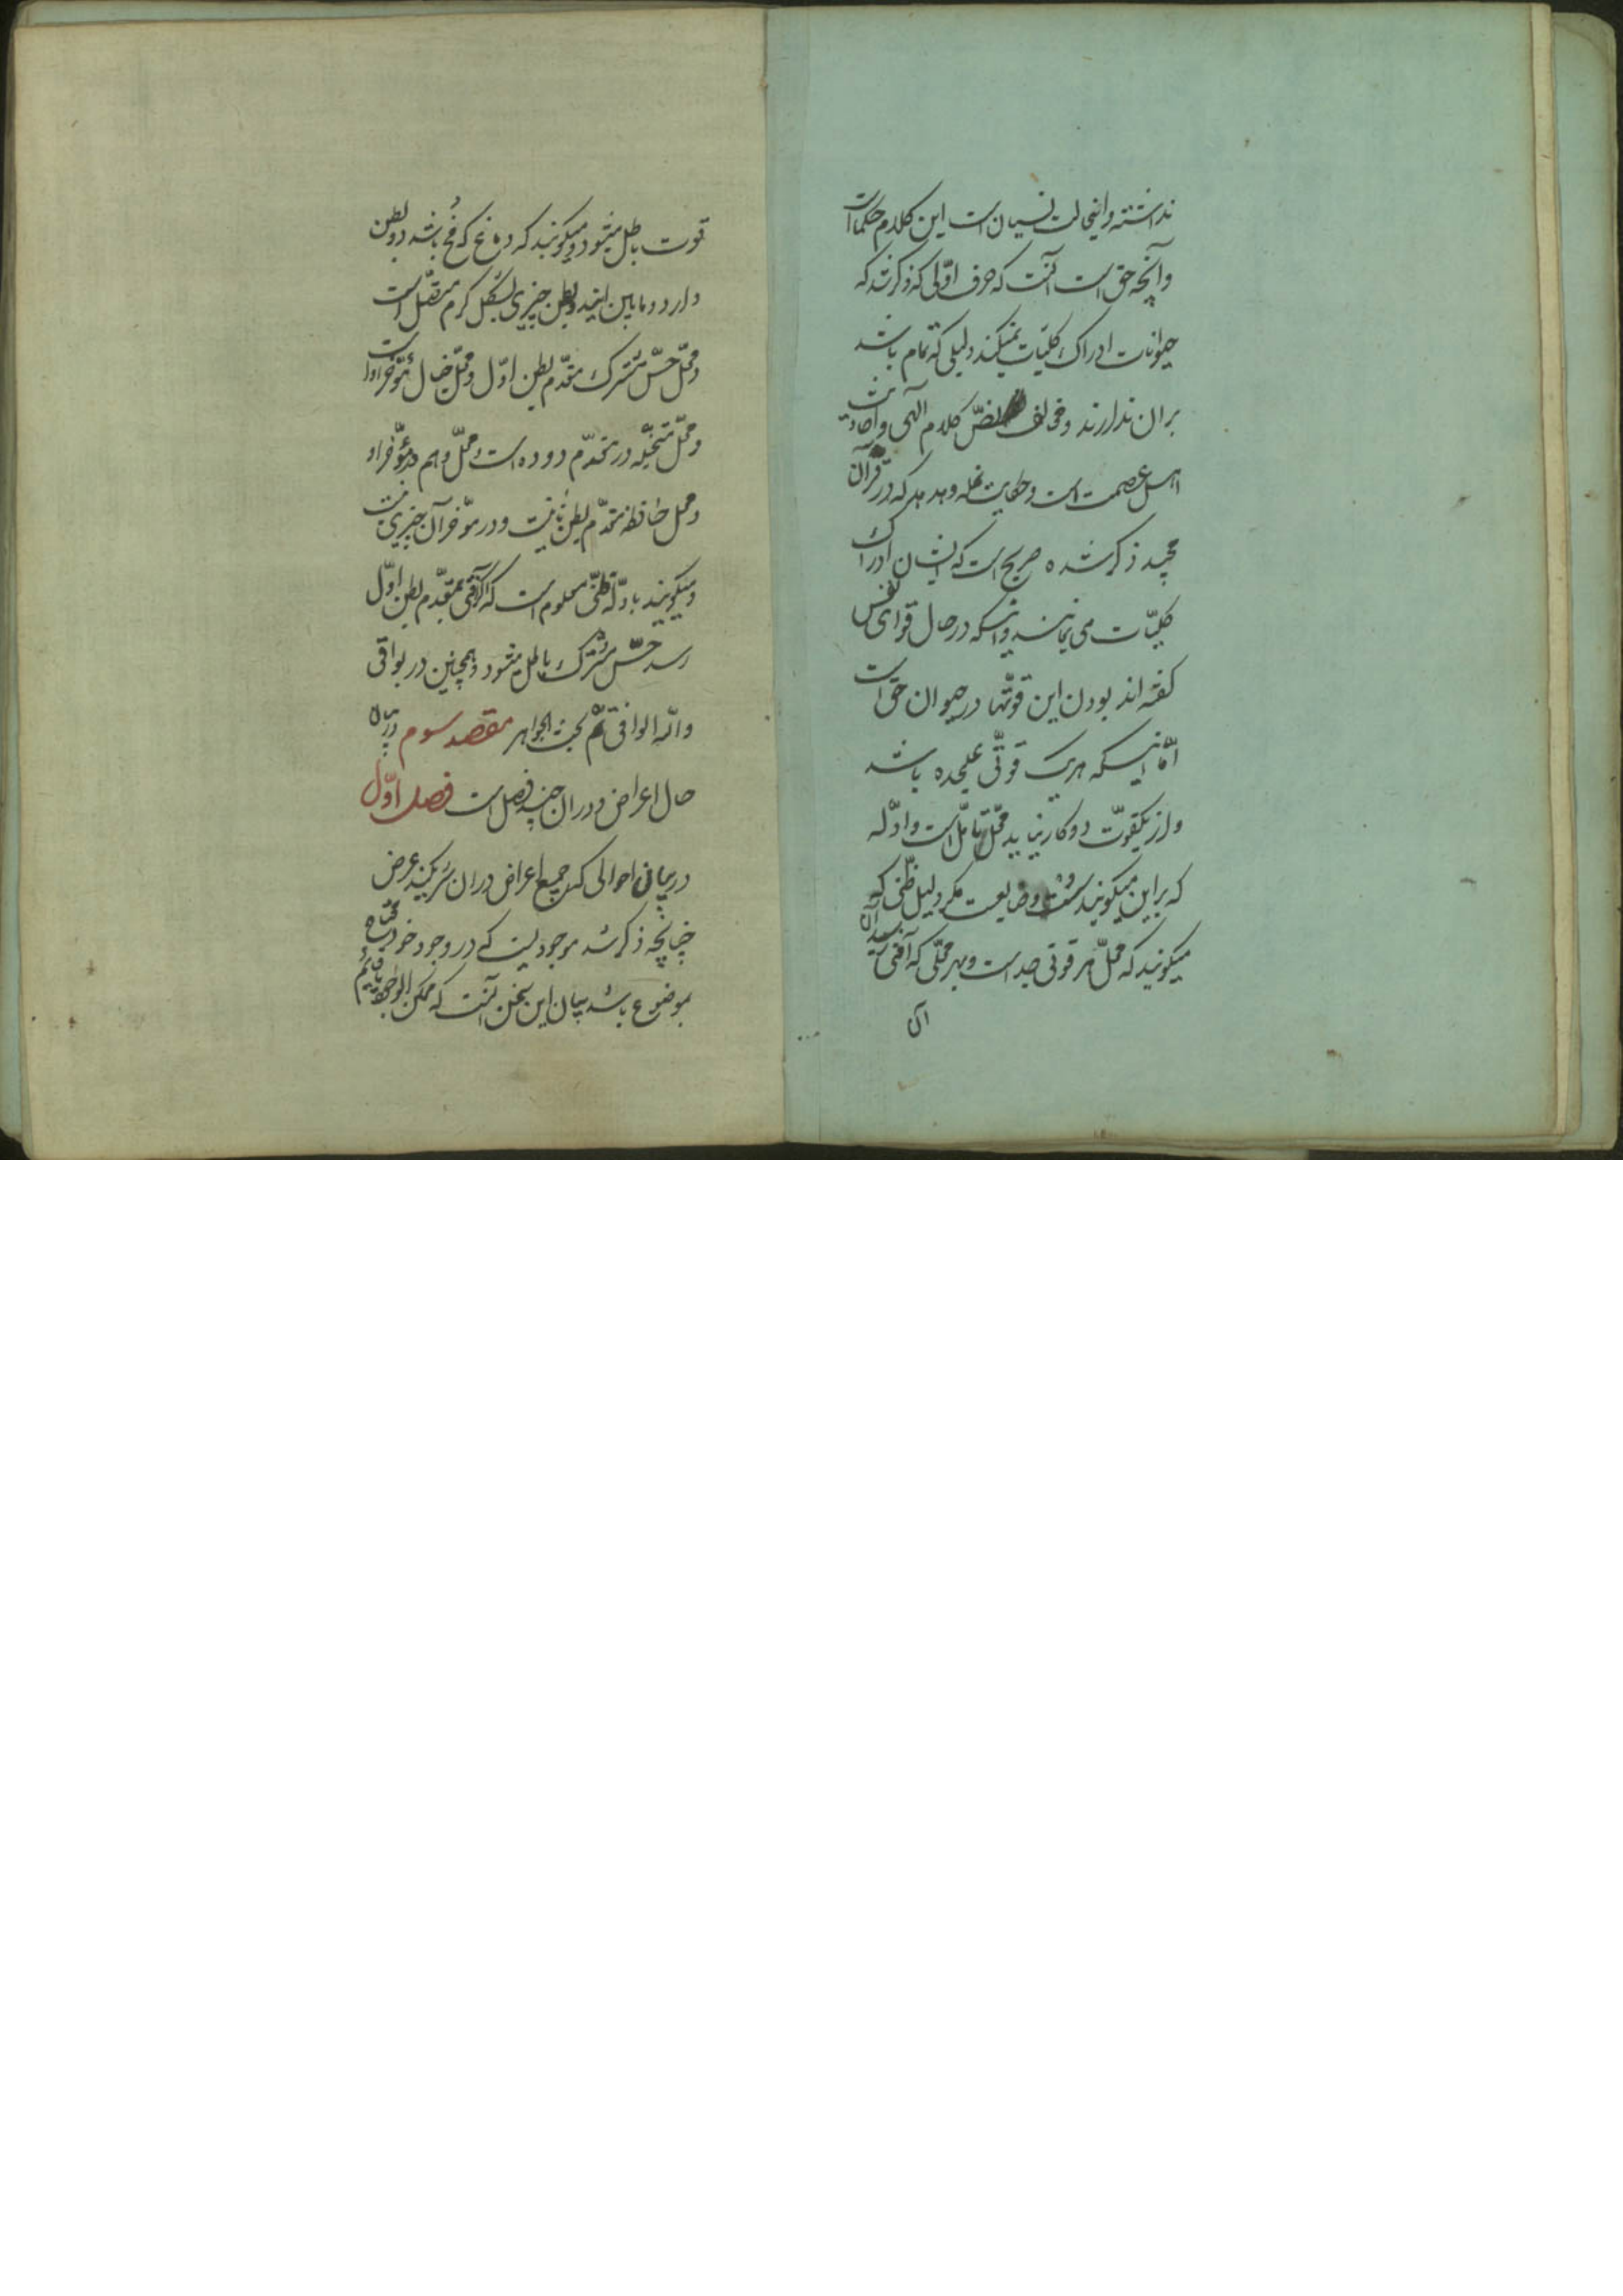 نداشته و اینحالت نسیان است این کلام حکما است
و آنچه حق است آنست که حرف اوّلی که ذکر شد که
حیوانات ادراک کلیّات نمیکنند دلیلی که تمام باشد
بران ندارند و مخالف نصّ کلام الهی و احادیث
اهل عصمت است و حکایت نمله و هدهد که در قرآن
مجید ذکر شده صریح است که ایشان ادراک
کلیّات می نمایند و انکه در حال قوای نفس
گفته اند بودن این قوّتها در حیوان حق است
امّا اینکه هریک قوّتی علیحده باشد
و از یکقوّت دو کار نیاید محلّ تأمّل است و ادلّه
که براین میگویند ضعیفست مگر دلیل ظنّی که
میگویند که محلّ هر قوتی جداست و بهر محلّی که آفتی رسد آن
آن
قوت باطل میشود و میگویند که دماغ که مخ باشد دو بطن
دارد و مابین ایند و بطن چیزی بشکل کرم است
و محلّ حسّ مشترک مقدّم بطن اوّل و محلّ خیال مؤخر او است
و محلّ متخیّله در مقدّم دوده است و محلّ وهم در مؤخر او
و محل حافظه مقدّم بطن ثانیست و در مؤخر آن چیزی نیست
و میگویند بادلّه ظنّی معلوم است که اگر آفتی بمقدّم بطن اوّل
رسد حسّ مشترک باطل میشود و همچنین در بواقی
والله الوافی تمّ بحث الجواهر مقصد سوم در بیان
حال اعراض و دران چند فصل است فصل اوّل
در بیان احوالی که جمیع اعراض دران شریکند عرض
چنانچه ذکر شد موجودیست که در وجود خود محتاج
بموضوع باشد بیان این سخن آنست که ممکن الوجود قایم